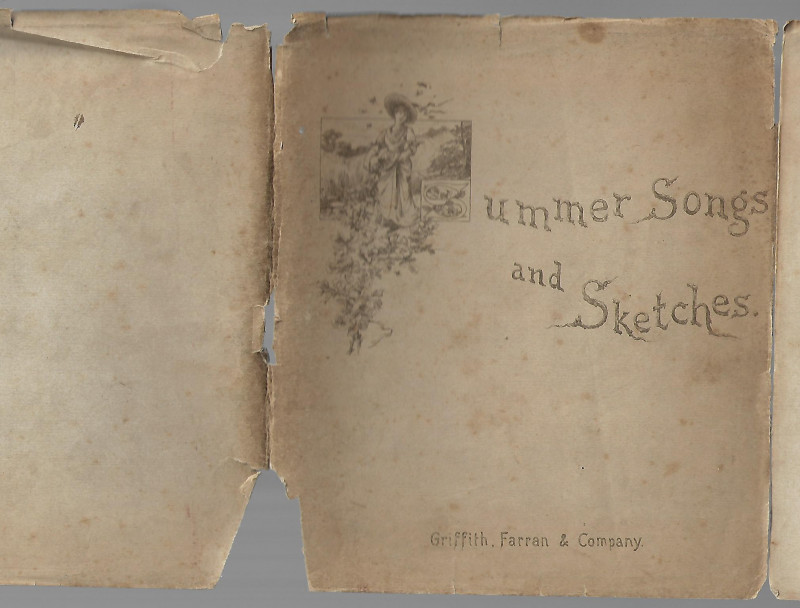 Summer Songs
and
Sketches.
Griffith, Farran & Company.